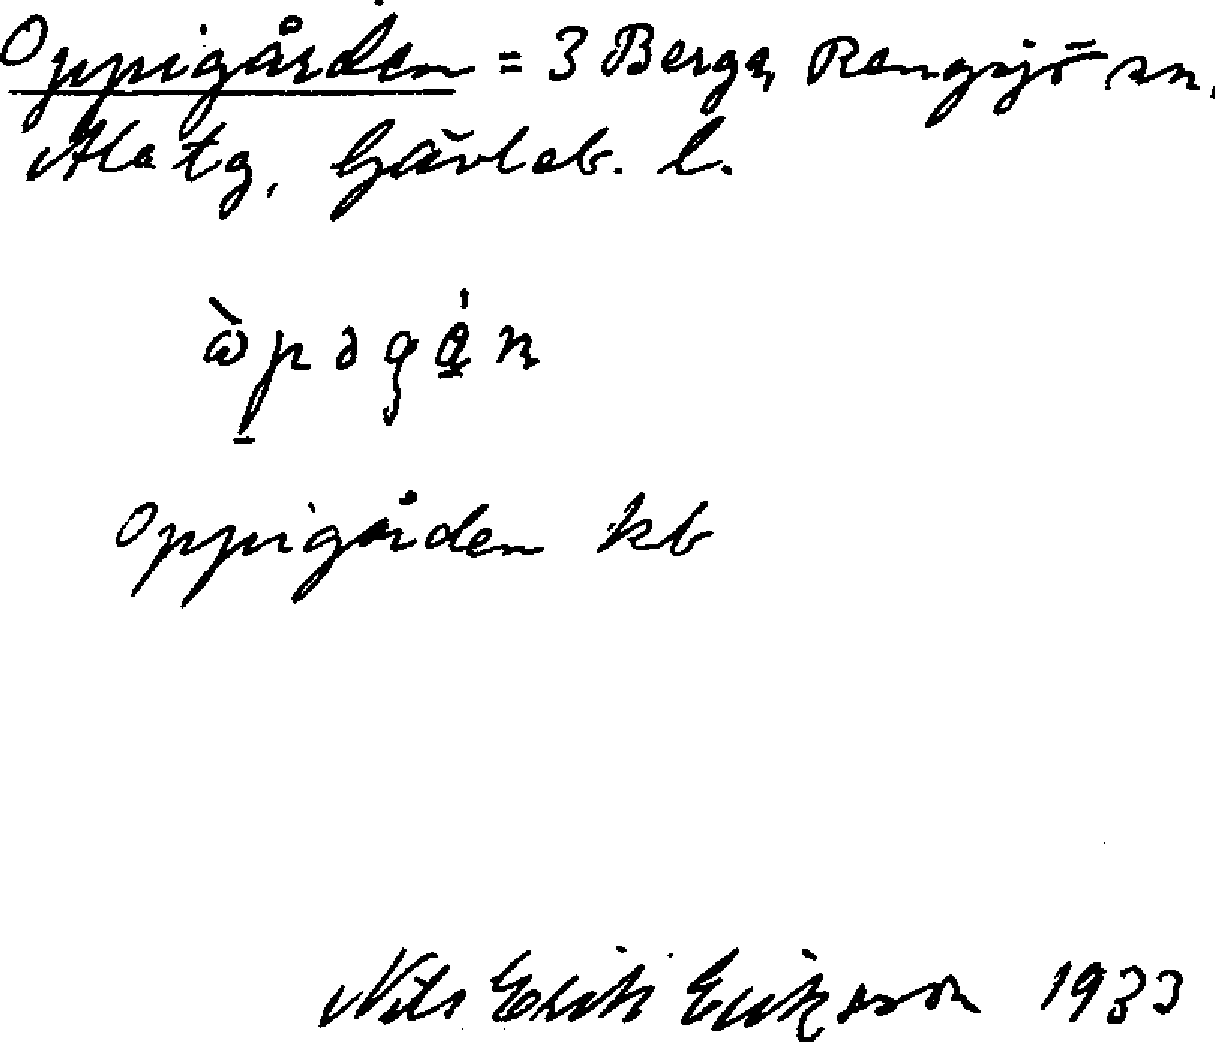 Oppigården = 3 Berga, Rengsjö sn.
Ala tg, Gävleb. l.
Oppigården kb
Nils Erik Eriksson 1933